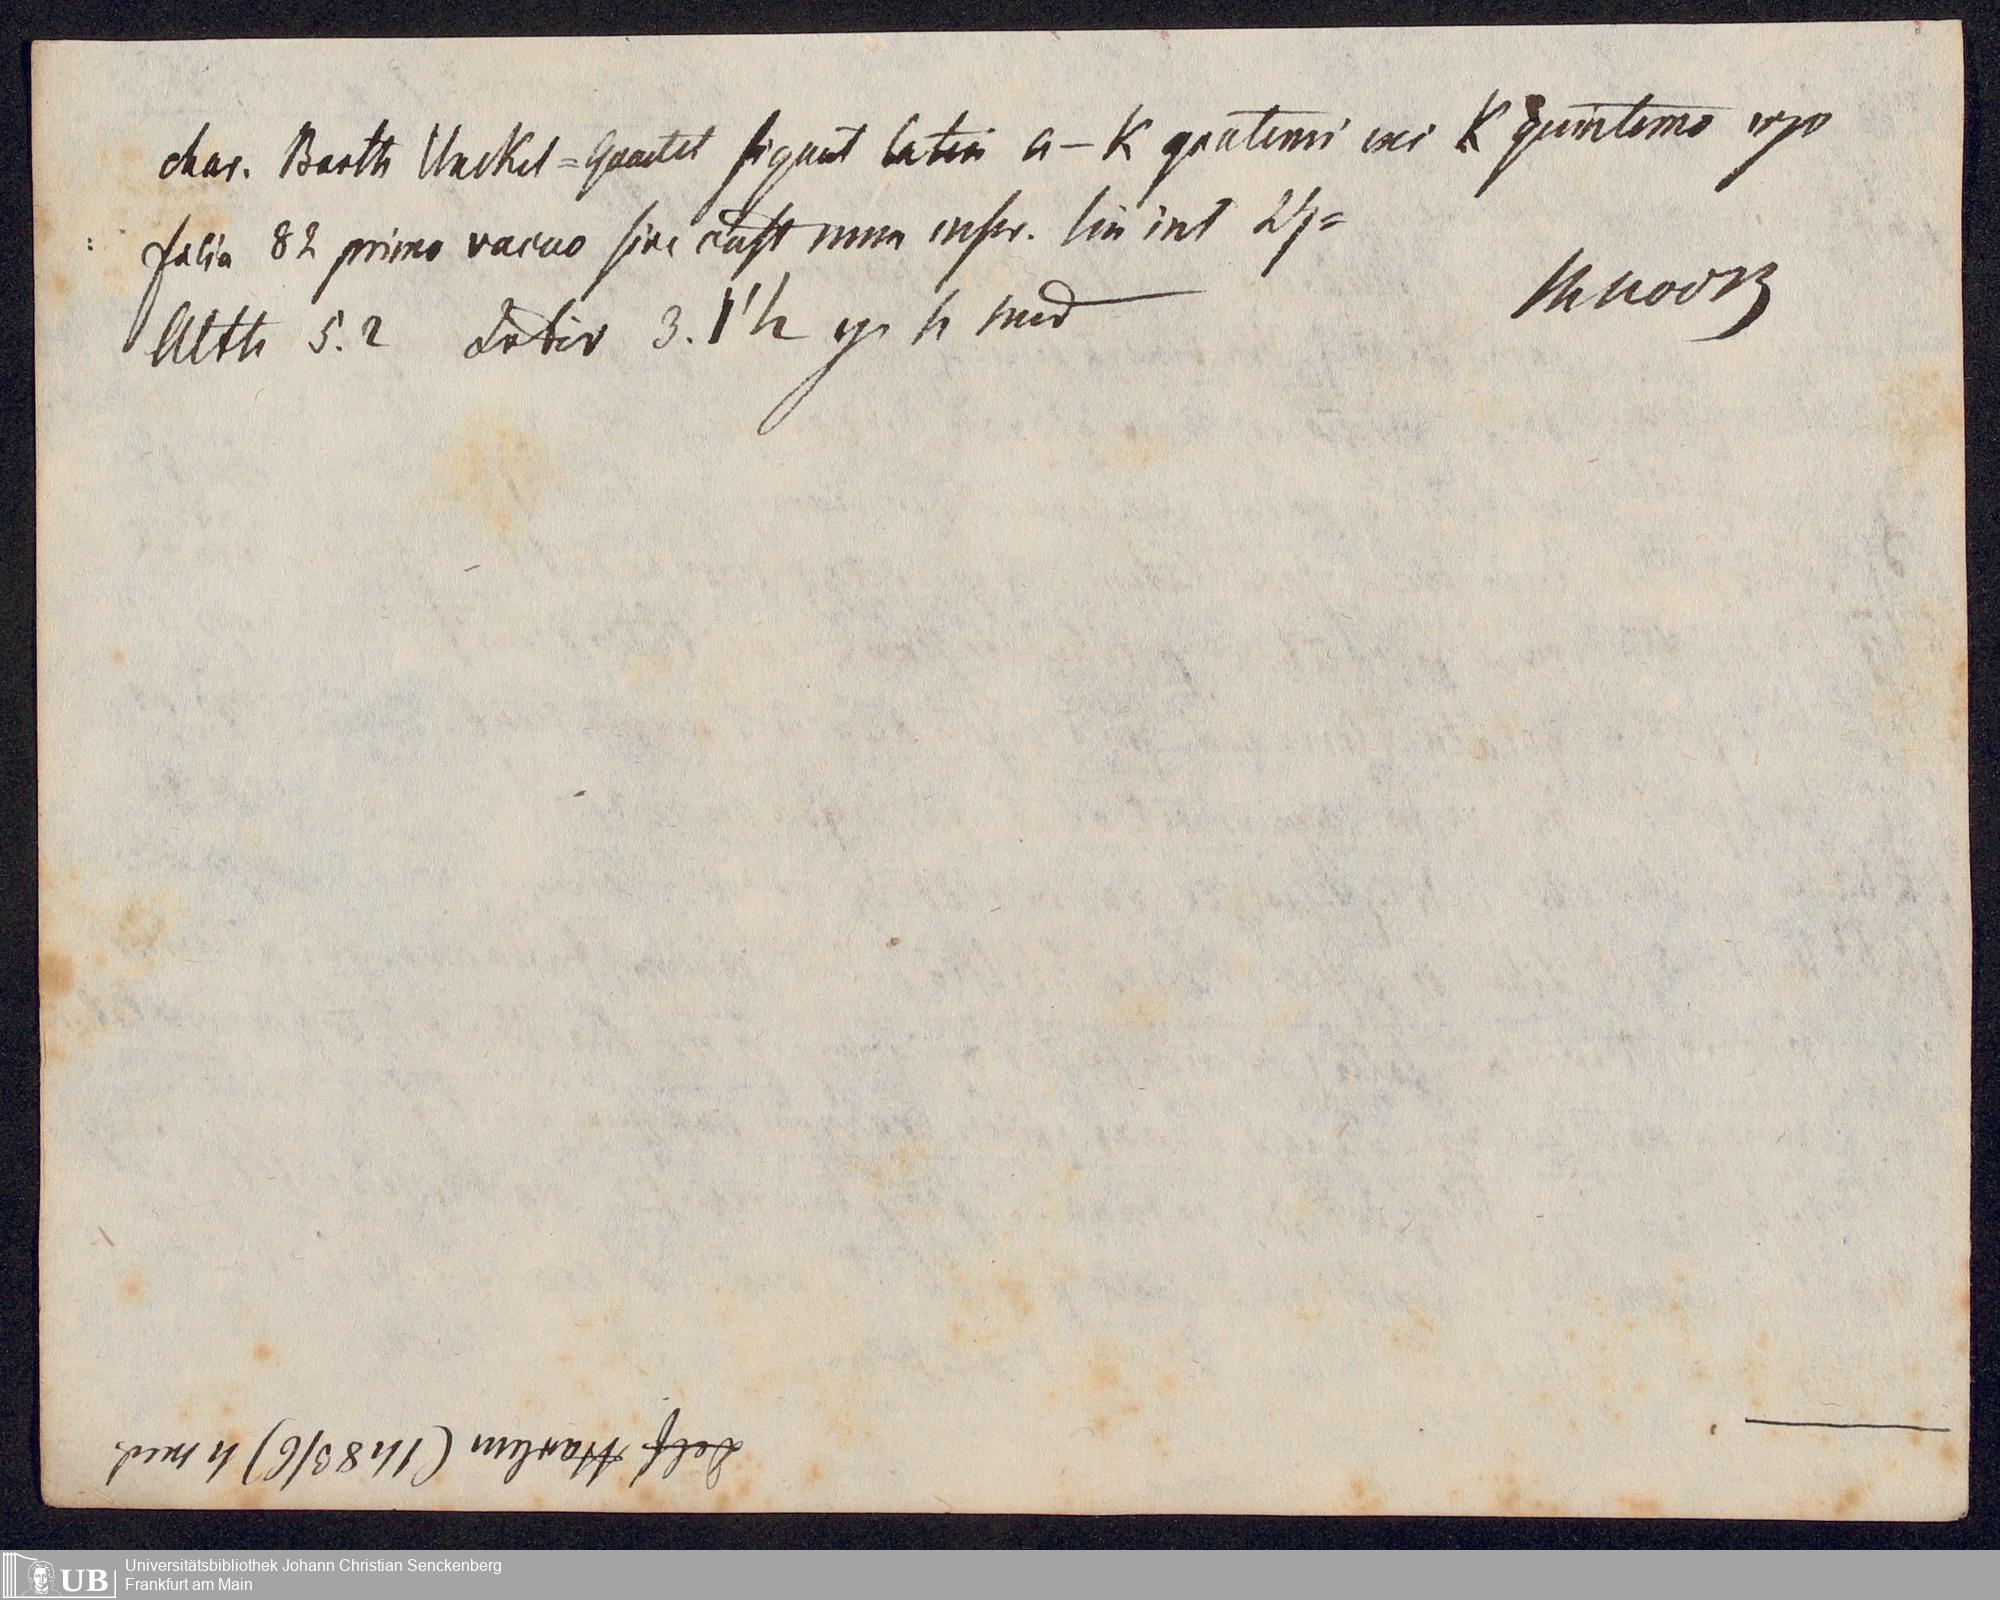 char. Barth Unckel = Quartet signat latin a – K quaterni exc K quinterno ergo
folia 82 primo vacuo sine cust num inscr. lin int 27 =
Altth 5. 2 3. 1'h h med
Delf Haarlem (1483/6) h med
Universitätsbibliothek Johann Christian Senckenberg
Frankfurt am Main
UB